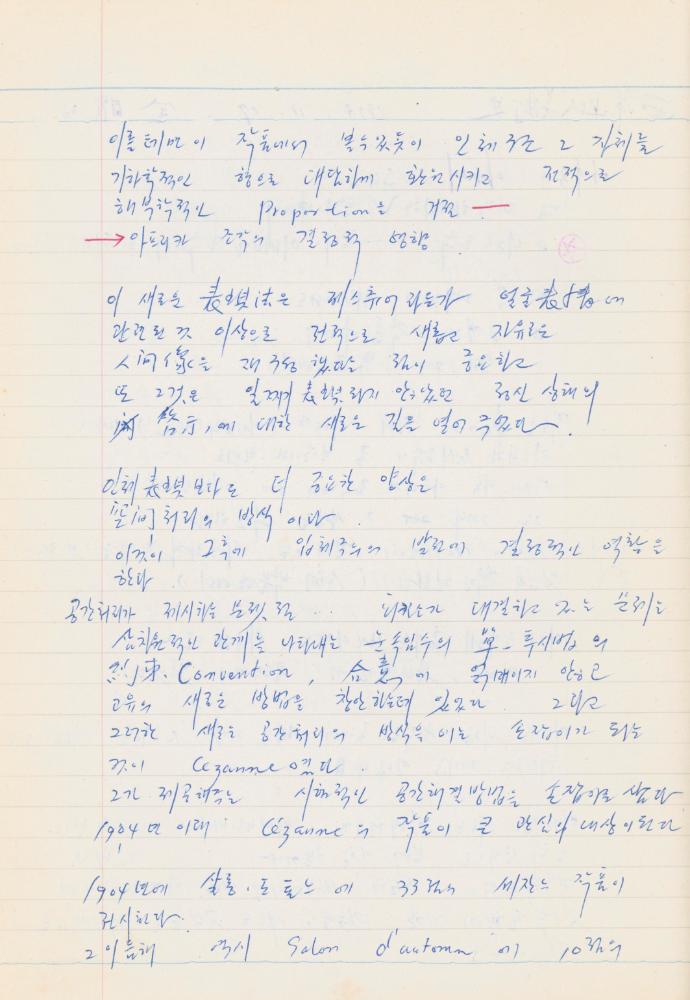 이를테면 이 작품에서 볼수 있듯이 인체구조 그 자체를
기하학적인 형으로 대담하게 환원시키고 전적으로
해부학적인 Proportion을 거절 —
→ 아프리카 조각의 결정적 영향.
이 새로운 表現法은 제스츄어라든가 얼굴表情에
관련된 것 이상으로 전적으로 새롭고 자유로운
人间像을 재구성했다는 점이 중요하고
또 그것은 일찌기 表現되지 않았던 정신 상태의
啓示,에 대한 새로운 길을 열어 주었다.
인체表現보다도 더 중요한 양상은
空间처리의 방식이다.
이것이 그후에 입체주의의 발전에 결정적인 역할을
한다
공간처리가 제시하는 문제점.. 피카소가 대결하고 있는 문제는
삼차원적인 관계를 나타내는 눈속임수의 單一투시법의
約束. Convention, 에 얽매이지 안하고
고유의 새로운 방법을 창안하는데 있었다. 그리고
그러한 새로운 공간처리의 방식을 이는 손잡이가 되는
것이 Cézanne였다.
그가 제공해주는 시험적인 공간해결방법을 손잡이로 삼다
1904년 이래 Cézanne의 작품이 큰 관심의 대상이 된다
1904년에 살롱·도톤느에 33점의 세잔느 작품이
전시된다.
그 이듬해 역시 Salon d'automn에 10점의